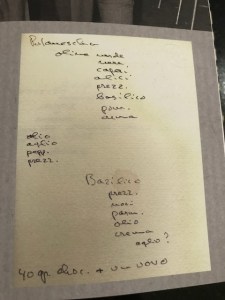 olive verdi
capp.
alici
prezz.
basilico
pom.
olio
aglio
pepp.
prezz.
Basilico
prezz.
noci
parm.
olio
crema
aglio?
40 gr. + un uovo